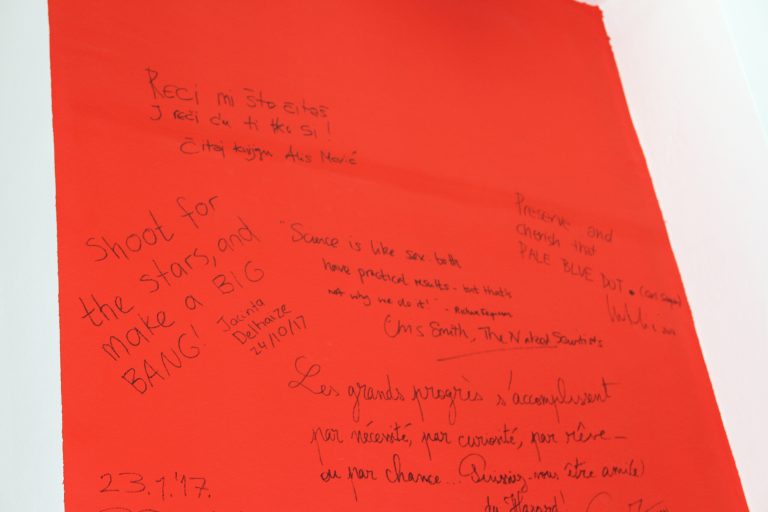 Reci mi što čitaš
I reći ću ti tko si!
Čitaj knjigu. Alis Marić
Shoot for
the stars, and
make a BIG
BANG!
Jacinta
Delhaize
24/10/17
"Science is like sex: both
have practical results - but that's
not why we do it!" - Richard Feynman
Chris Smith, The Naked Scientists
Preserve and
cherish that
PALE BLUE DOT. (Carl Sagan)
Les grands progrès s'accomplissent
par nécessité, par curiosité, par rêve –
ou par chance... Puissiez-vous être ami(e)
du Hasard!
23.1.'17.